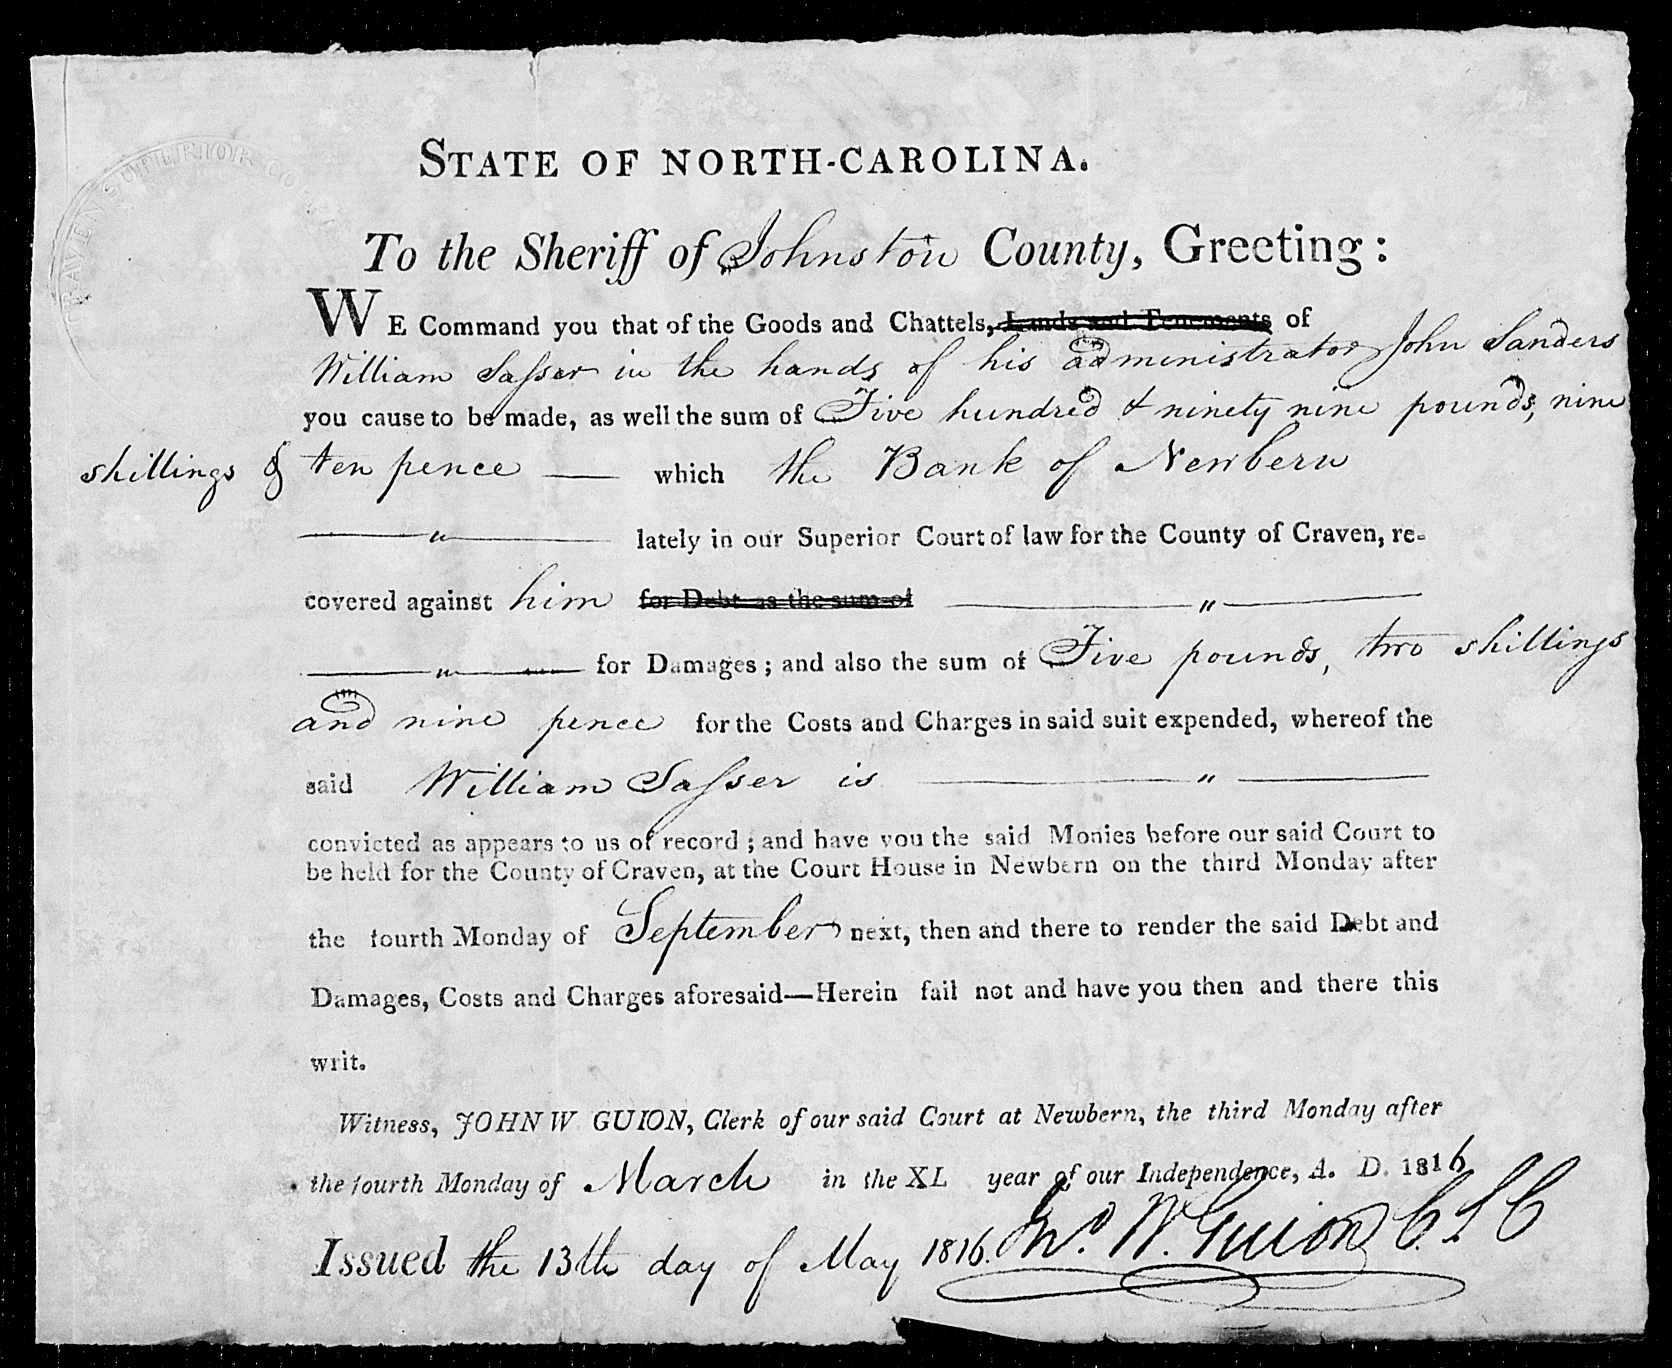 CRAVEN SUPERIOR CO
STATE OF NORTH-CAROLINA.
To the Sheriff of Johnston County, Greeting:
WE Command you that of the Goods and Chattels, Lands and Tenements of
William Saſser in the hands of his administrator John Sanders
you cause to be made, as well the sum of Five hundred & ninety nine pounds, nine
shillings & ten pence — which the Bank of Newbern
—"— lately in our Superior Court of law for the County of Craven, re-
covered against him for Debt as the sum of —"—
—"— for Damages; and also the sum of Five pounds, two shillings
and nine pence for the Costs and Charges in said suit expended, whereof the
said William Saſser is —"—
convicted as appears to us of record; and have you the said Monies before our said Court to
be held for the County of Craven, at the Court House in Newbern on the third Monday after
the fourth Monday of September next, then and there to render the said Debt and
Damages, Costs and Charges aforesaid—Herein fail not and have you then and there this
writ.
Witness, JOHN W GUION, Clerk of our said Court at Newbern, the third Monday after
the fourth Monday of March in the XL year of our Independence, A. D. 1816
Issued the 13th day of May 1816. Jno. W. Guion C S C